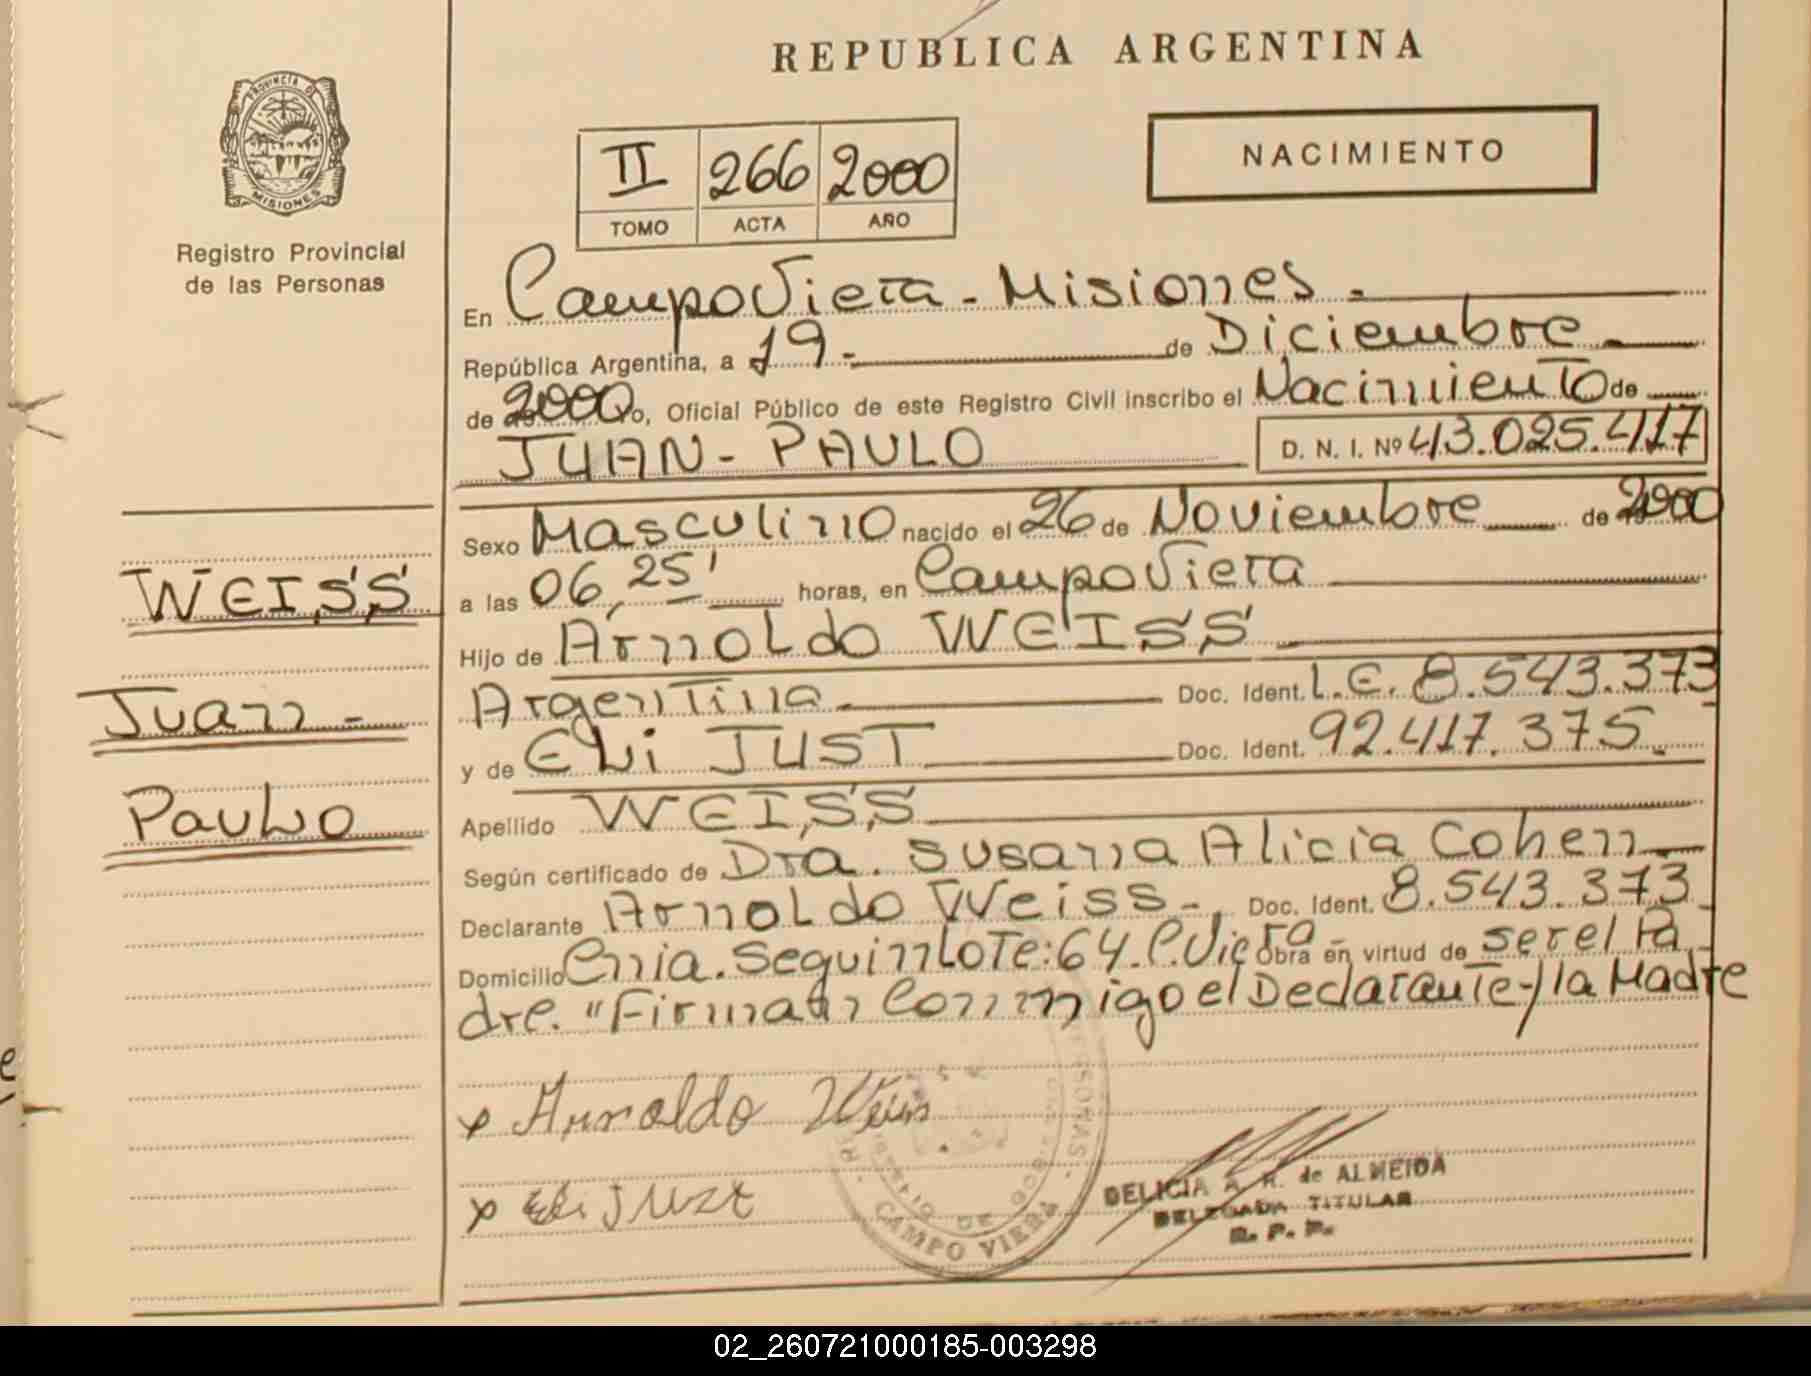 REPUBLICA ARGENTINA
PROVINCIA DE
MISIONES
Registro Provincial
de las Personas
II 266 2000
TOMO ACTA AÑO
NACIMIENTO
En Campo Viera - Misiones -
República Argentina, a 19 - de Diciembre
de 2000 yo, Oficial Público de este Registro Civil inscribo el Nacimiento de
JUAN - PAULO D. N. I. Nº 43.025.417
Sexo Masculino nacido el 26 de Noviembre de 2000
a las 06,25' horas, en Campo Viera
Hijo de Arnoldo WEISS
Argentina Doc. Ident. L.E. 8.543.373
y de ELi JUST Doc. Ident. 92.417.375
Apellido WEISS
Según certificado de Dra. Susana Alicia Cohen
Declarante Arnoldo Weiss - Doc. Ident. 8.543.373
Domicilio Cnia. Seguin Lote: 64. C. Viera - Obra en virtud de ser el Pa
dre. "Firman Conmigo el Declarante y la Madre
WEISS
Juan -
Paulo
x Arnoldo Weiss
x Eli Just
CAMPO VIERA
DELICIA A. R. de ALMEIDA
DELEGADA TITULAR
R. P. P.
02_260721000185-003298